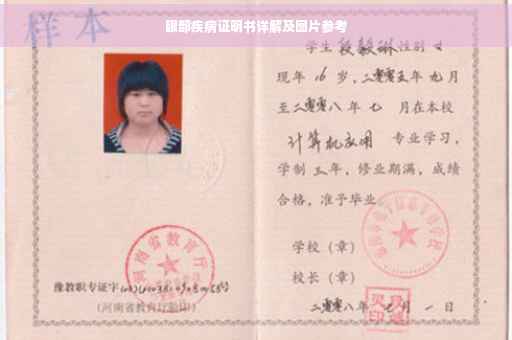 眼部疾病证明书详解及图片参考
样本
学生段毅琳性别女
现年16岁,二零零五年九月
至二零零八年七月在本校
计算机应用 专业学习,
学制三年,修业期满,成绩
合格,准予毕业
学校(章)
校长(章)
二零零八年七月一日
河南省教育厅
豫教职专证字
(河南省教育厅验印)